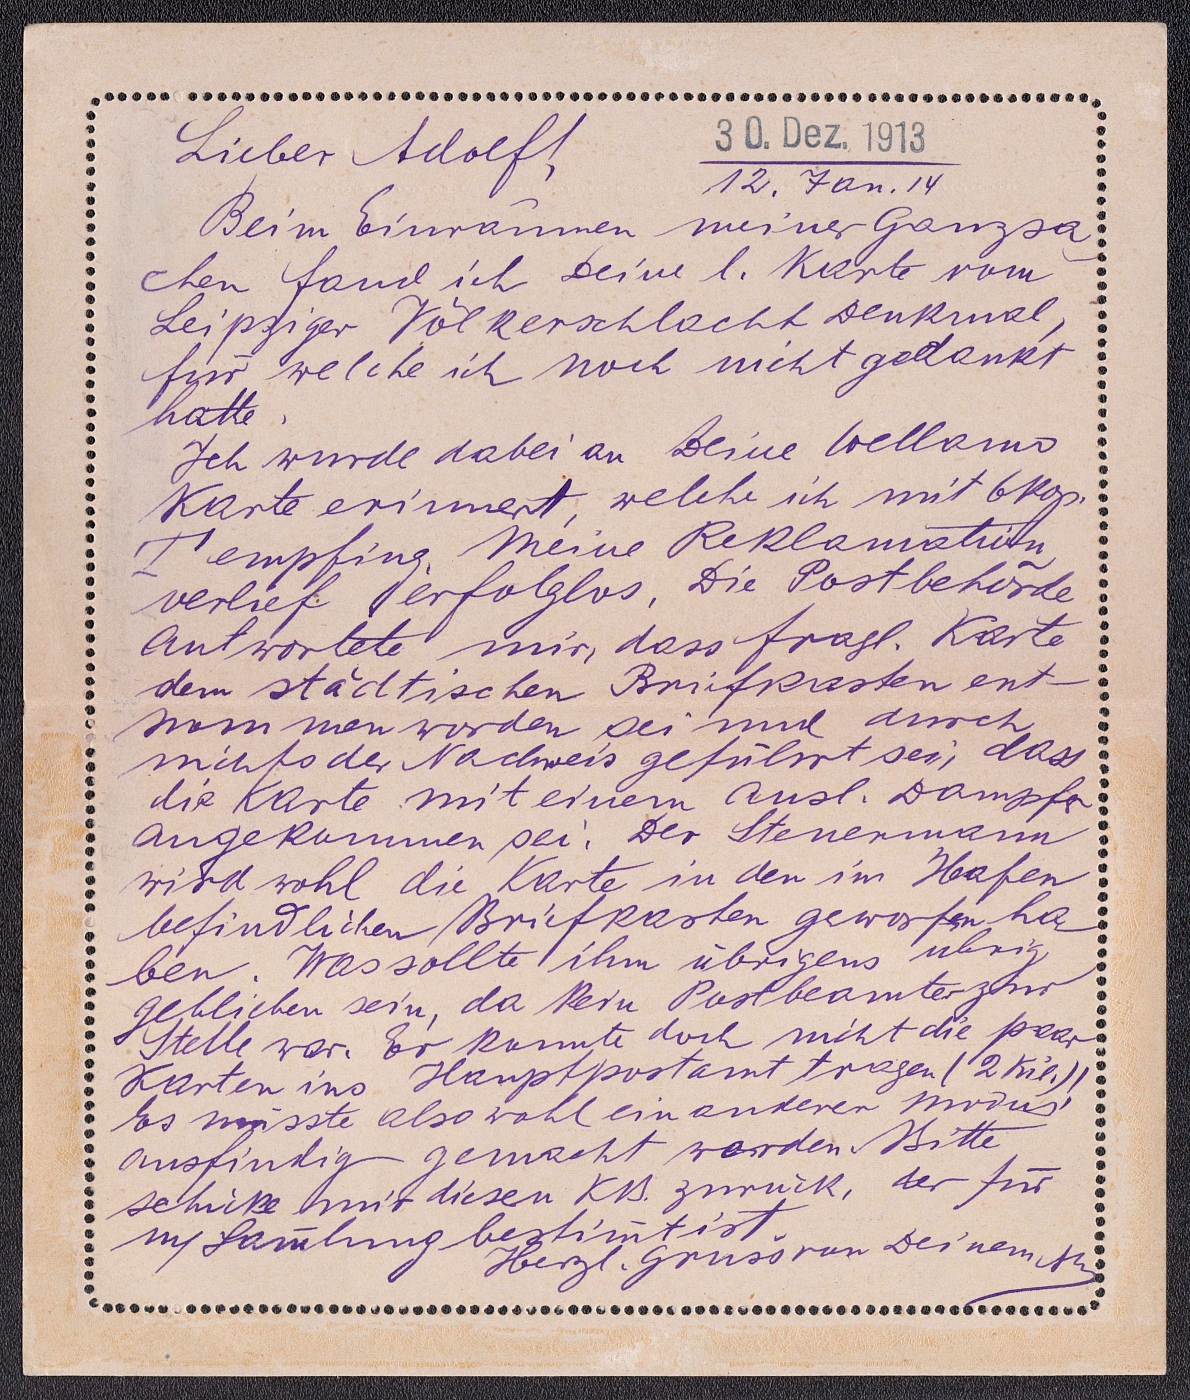 Lieber Adolf!
30. Dez. 1913
12. Jan. 14
Beim Einräumen meiner Ganzsa
chen fand ich Deine l. Karte vom
Leipziger Völkerschlacht Denkmal,
für welche ich noch nicht gedankt
hatte.
Ich wurde dabei an Deine Wellamo
Karte erinnert, welche ich mit 6 Kop.
T empfing. Meine Reklamation
verlief erfolglos. Die Postbehörde
antwortete mir, dass fragl. Karte
dem städtischen Briefkasten ent-
nommen worden sei und durch
nichts der Nachweis geführt sei, dass
die Karte mit einem ausl. Dampfer
angekommen sei. Der Steuermann
wird wohl die Karte in den im Hafen
befindlichen Briefkasten geworfen ha
ben. Was sollte ihm übrigens übrig
geblieben sein, da kein Postbeamter zur
Stelle war. Er konnte doch nicht die paar
Karten ins Hauptpostamt tragen (2 Kil.)!
Es müsste also wohl ein anderer modus
ausfindig gemacht werden. Bitte
schicke mir diesen KB. zurück, der für
m/ Sam̅lung bestim̅t ist.
Herzl. Gruss von Deinem